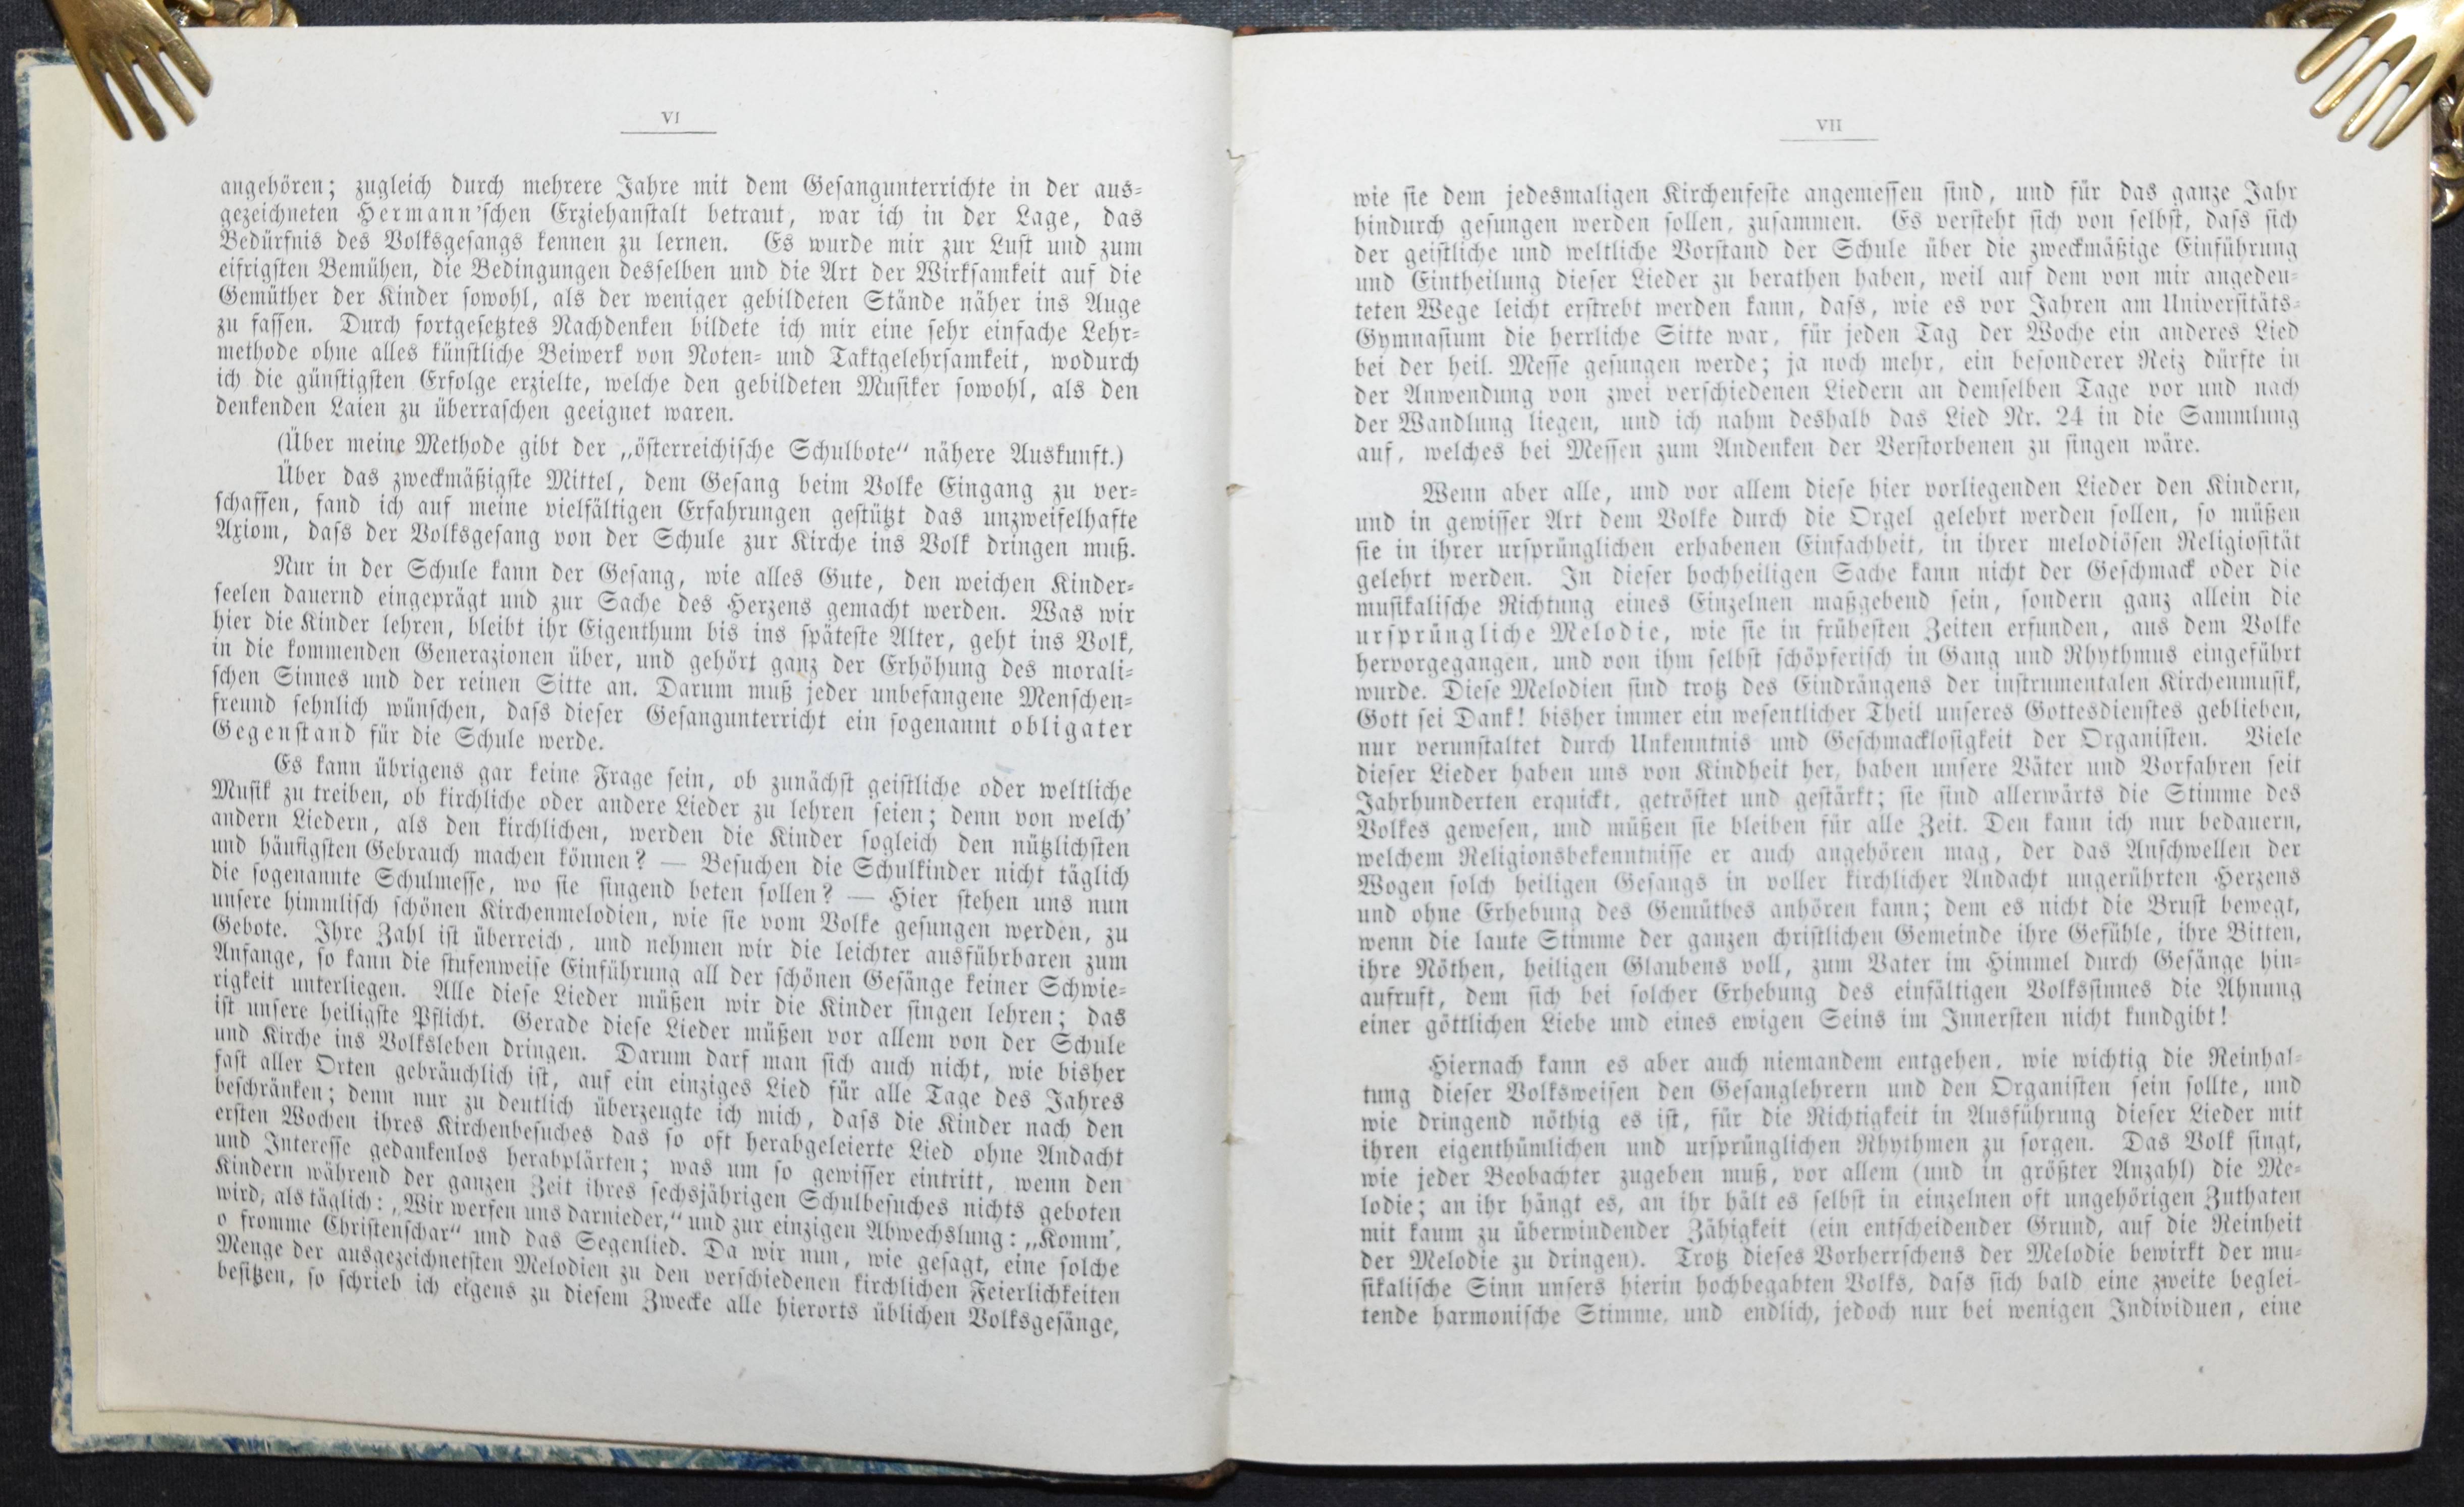 VI
angehören; zugleich durch mehrere Jahre mit dem Gesangunterrichte in der aus-
gezeichneten Hermann'schen Erziehanstalt betraut, war ich in der Lage, das
Bedürfnis des Volksgesangs kennen zu lernen. Es wurde mir zur Lust und zum
eifrigsten Bemühen, die Bedingungen desselben und die Art der Wirksamkeit auf die
Gemüther der Kinder sowohl, als der weniger gebildeten Stände näher ins Auge
zu fassen. Durch fortgesetztes Nachdenken bildete ich mir eine sehr einfache Lehr-
methode ohne alles künstliche Beiwerk von Noten- und Taktgelehrsamkeit, wodurch
ich die günstigsten Erfolge erzielte, welche den gebildeten Musiker sowohl, als den
denkenden Laien zu überraschen geeignet waren.
(Über meine Methode gibt der „österreichische Schulbote" nähere Auskunft.)
Über das zweckmäßigste Mittel, dem Gesang beim Volke Eingang zu ver-
schaffen, fand ich auf meine vielfältigen Erfahrungen gestützt das unzweifelhafte
Axiom, dass der Volksgesang von der Schule zur Kirche ins Volk dringen muß.
Nur in der Schule kann der Gesang, wie alles Gute, den weichen Kinder-
seelen dauernd eingeprägt und zur Sache des Herzens gemacht werden. Was wir
hier die Kinder lehren, bleibt ihr Eigenthum bis ins späteste Alter, geht ins Volk,
in die kommenden Generazionen über, und gehört ganz der Erhöhung des morali-
schen Sinnes und der reinen Sitte an. Darum muß jeder unbefangene Menschen-
freund sehnlich wünschen, dass dieser Gesangunterricht ein sogenannt obligater
Gegenstand für die Schule werde.
Es kann übrigens gar keine Frage sein, ob zunächst geistliche oder weltliche
Musik zu treiben, ob kirchliche oder andere Lieder zu lehren seien; denn von welch'
andern Liedern, als den kirchlichen, werden die Kinder sogleich den nützlichsten
und häufigsten Gebrauch machen können? — Besuchen die Schulkinder nicht täglich
die sogenannte Schulmesse, wo sie singend beten sollen? — Hier stehen uns nun
unsere himmlisch schönen Kirchenmelodien, wie sie vom Volke gesungen werden, zu
Gebote. Ihre Zahl ist überreich, und nehmen wir die leichter ausführbaren zum
Anfange, so kann die stufenweise Einführung all der schönen Gesänge keiner Schwie-
rigkeit unterliegen. Alle diese Lieder müßen wir die Kinder singen lehren; das
ist unsere heiligste Pflicht. Gerade diese Lieder müßen vor allem von der Schule
und Kirche ins Volksleben dringen. Darum darf man sich auch nicht, wie bisher
fast aller Orten gebräuchlich ist, auf ein einziges Lied für alle Tage des Jahres
beschränken; denn nur zu deutlich überzeugte ich mich, dass die Kinder nach den
ersten Wochen ihres Kirchenbesuches das so oft herabgeleierte Lied ohne Andacht
und Interesse gedankenlos herabplärten; was um so gewisser eintritt, wenn den
Kindern während der ganzen Zeit ihres sechsjährigen Schulbesuches nichts geboten
wird, als täglich: „Wir werfen uns darnieder," und zur einzigen Abwechslung: „Komm',
o fromme Christenschar" und das Segenlied. Da wir nun, wie gesagt, eine solche
Menge der ausgezeichnetsten Melodien zu den verschiedenen kirchlichen Feierlichkeiten
besitzen, so schrieb ich eigens zu diesem Zwecke alle hierorts üblichen Volksgesänge,
VII
wie sie dem jedesmaligen Kirchenfeste angemessen sind, und für das ganze Jahr
hindurch gesungen werden sollen, zusammen. Es versteht sich von selbst, dass sich
der geistliche und weltliche Vorstand der Schule über die zweckmäßige Einführung
und Eintheilung dieser Lieder zu berathen haben, weil auf dem von mir angedeu-
teten Wege leicht erstrebt werden kann, dass, wie es vor Jahren am Universitäts-
Gymnasium die herrliche Sitte war, für jeden Tag der Woche ein anderes Lied
bei der heil. Messe gesungen werde; ja noch mehr, ein besonderer Reiz dürfte in
der Anwendung von zwei verschiedenen Liedern an demselben Tage vor und nach
der Wandlung liegen, und ich nahm deshalb das Lied Nr. 24 in die Sammlung
auf, welches bei Messen zum Andenken der Verstorbenen zu singen wäre.
Wenn aber alle, und vor allem diese hier vorliegenden Lieder den Kindern,
und in gewisser Art dem Volke durch die Orgel gelehrt werden sollen, so müßen
sie in ihrer ursprünglichen erhabenen Einfachheit, in ihrer melodiösen Religiosität
gelehrt werden. In dieser hochheiligen Sache kann nicht der Geschmack oder die
musikalische Richtung eines Einzelnen maßgebend sein, sondern ganz allein die
ursprüngliche Melodie, wie sie in frühesten Zeiten erfunden, aus dem Volke
hervorgegangen, und von ihm selbst schöpferisch in Gang und Rhythmus eingeführt
wurde. Diese Melodien sind trotz des Eindrängens der instrumentalen Kirchenmusik,
Gott sei Dank! bisher immer ein wesentlicher Theil unseres Gottesdienstes geblieben,
nur verunstaltet durch Unkenntnis und Geschmacklosigkeit der Organisten. Viele
dieser Lieder haben uns von Kindheit her, haben unsere Väter und Vorfahren seit
Jahrhunderten erquickt, getröstet und gestärkt; sie sind allerwärts die Stimme des
Volkes gewesen, und müßen sie bleiben für alle Zeit. Den kann ich nur bedauern,
welchem Religionsbekenntnisse er auch angehören mag, der das Anschwellen der
Wogen solch heiligen Gesangs in voller kirchlicher Andacht ungerührten Herzens
und ohne Erhebung des Gemüthes anhören kann; dem es nicht die Brust bewegt,
wenn die laute Stimme der ganzen christlichen Gemeinde ihre Gefühle, ihre Bitten,
ihre Nöthen, heiligen Glaubens voll, zum Vater im Himmel durch Gesänge hin-
aufruft, dem sich bei solcher Erhebung des einfältigen Volkssinnes die Ahnung
einer göttlichen Liebe und eines ewigen Seins im Innersten nicht kundgibt!
Hiernach kann es aber auch niemandem entgehen, wie wichtig die Reinhal-
tung dieser Volksweisen den Gesanglehrern und den Organisten sein sollte, und
wie dringend nöthig es ist, für die Richtigkeit in Ausführung dieser Lieder mit
ihren eigenthümlichen und ursprünglichen Rhythmen zu sorgen. Das Volk singt,
wie jeder Beobachter zugeben muß, vor allem (und in größter Anzahl) die Me-
lodie; an ihr hängt es, an ihr hält es selbst in einzelnen oft ungehörigen Zuthaten
mit kaum zu überwindender Zähigkeit (ein entscheidender Grund, auf die Reinheit
der Melodie zu dringen). Trotz dieses Vorherrschens der Melodie bewirkt der mu-
sikalische Sinn unsers hierin hochbegabten Volks, dass sich bald eine zweite beglei-
tende harmonische Stimme, und endlich, jedoch nur bei wenigen Individuen, eine